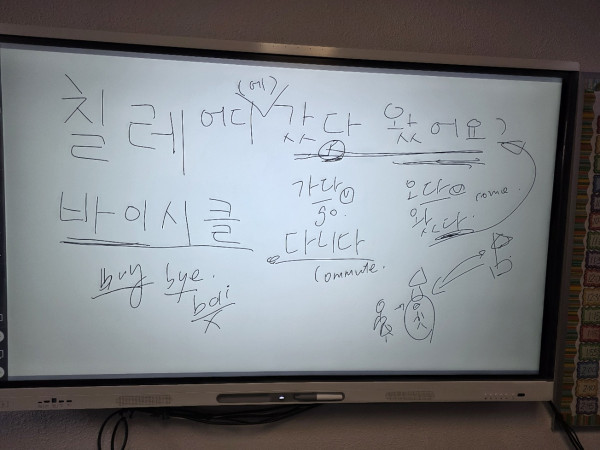 (에)
칠레 어디 갔다 왔어요?
바이시클
가다 오다 come.
go. 왔다.
다니다
commute.
buy bye.
bai
옷